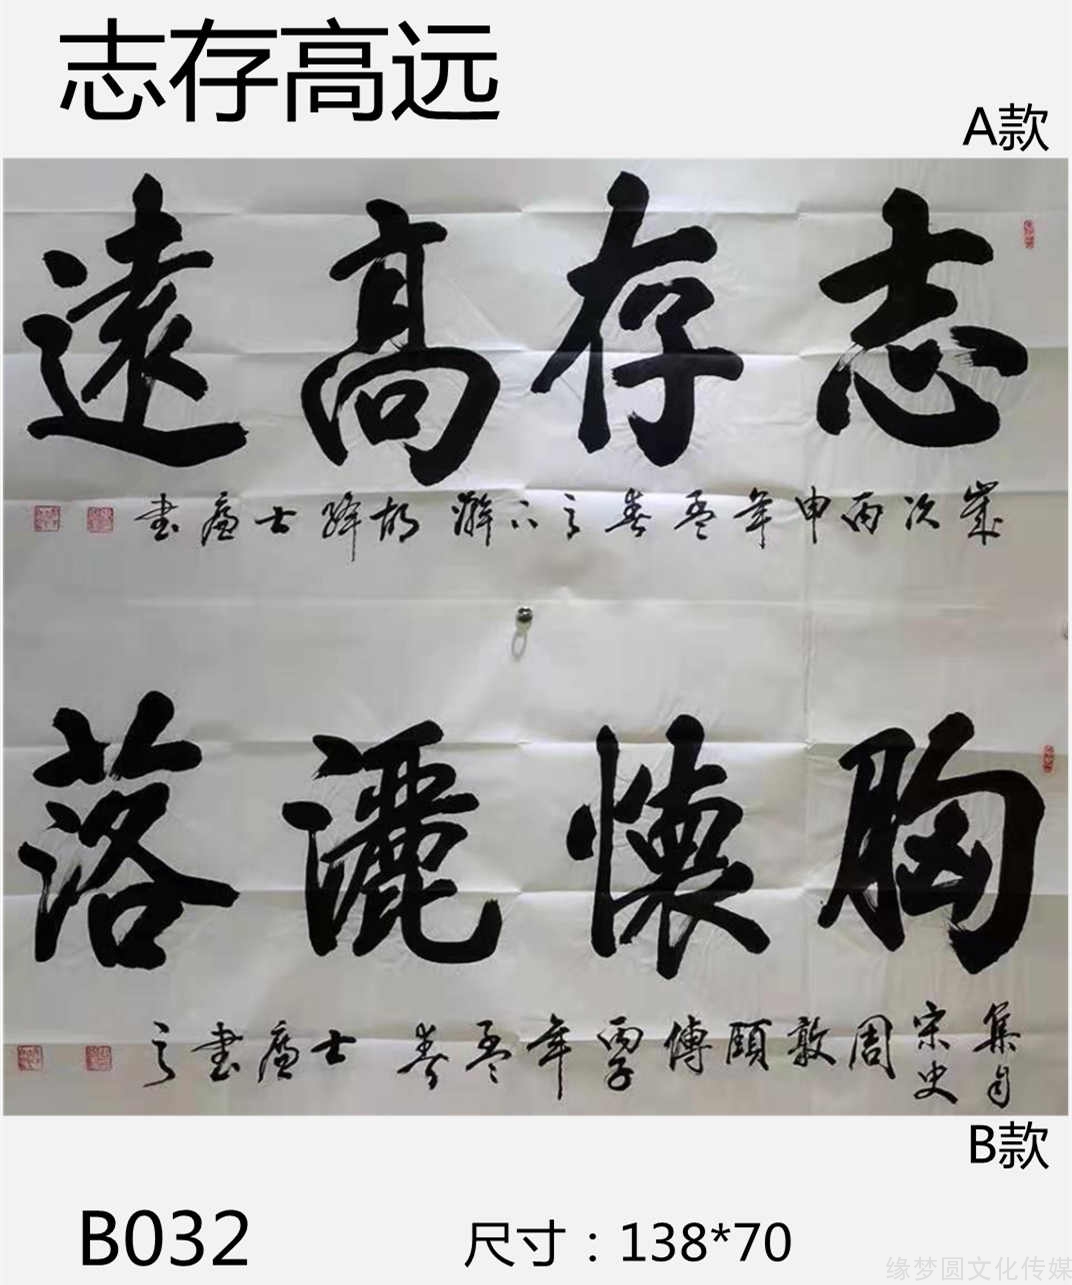 志存高远
A款
志存高遠
歲次丙申年孟春之
士廉書
胸懷灑落
集自宋史周敦頤傳
年孟春
士廉書之
B款
B032
尺寸：138*70
缘梦圆文化传媒